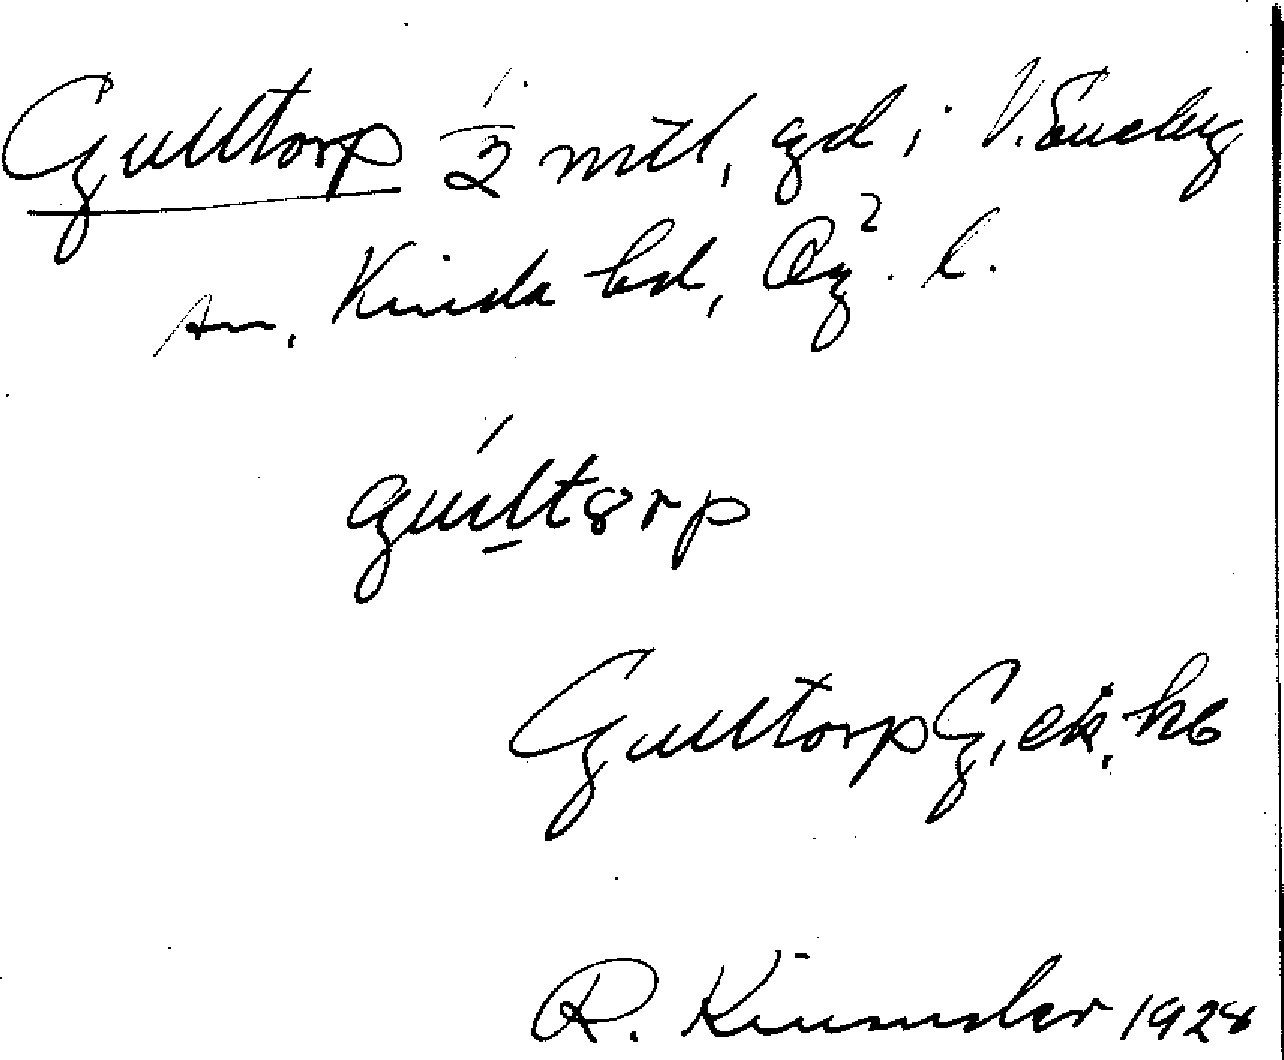 Gulltorp 1/2 mtl, gd i V. Eneby
sn, Kinda hd, Ög². l.
gúlltorp
Gulltorp G, ek, kb
R. 1928